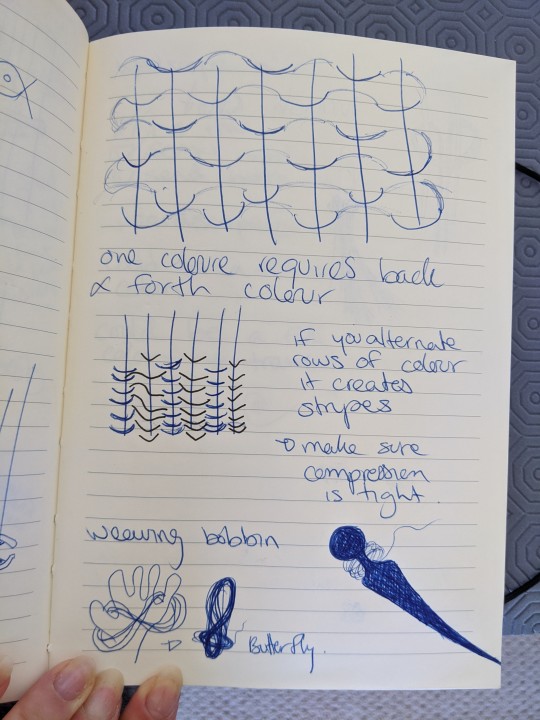 one coloure requires back
& forth colour
if you alternate
rows of colour
it creates
stripes
make sure
compression
is tight.
weaving bobbin
Butterfly.